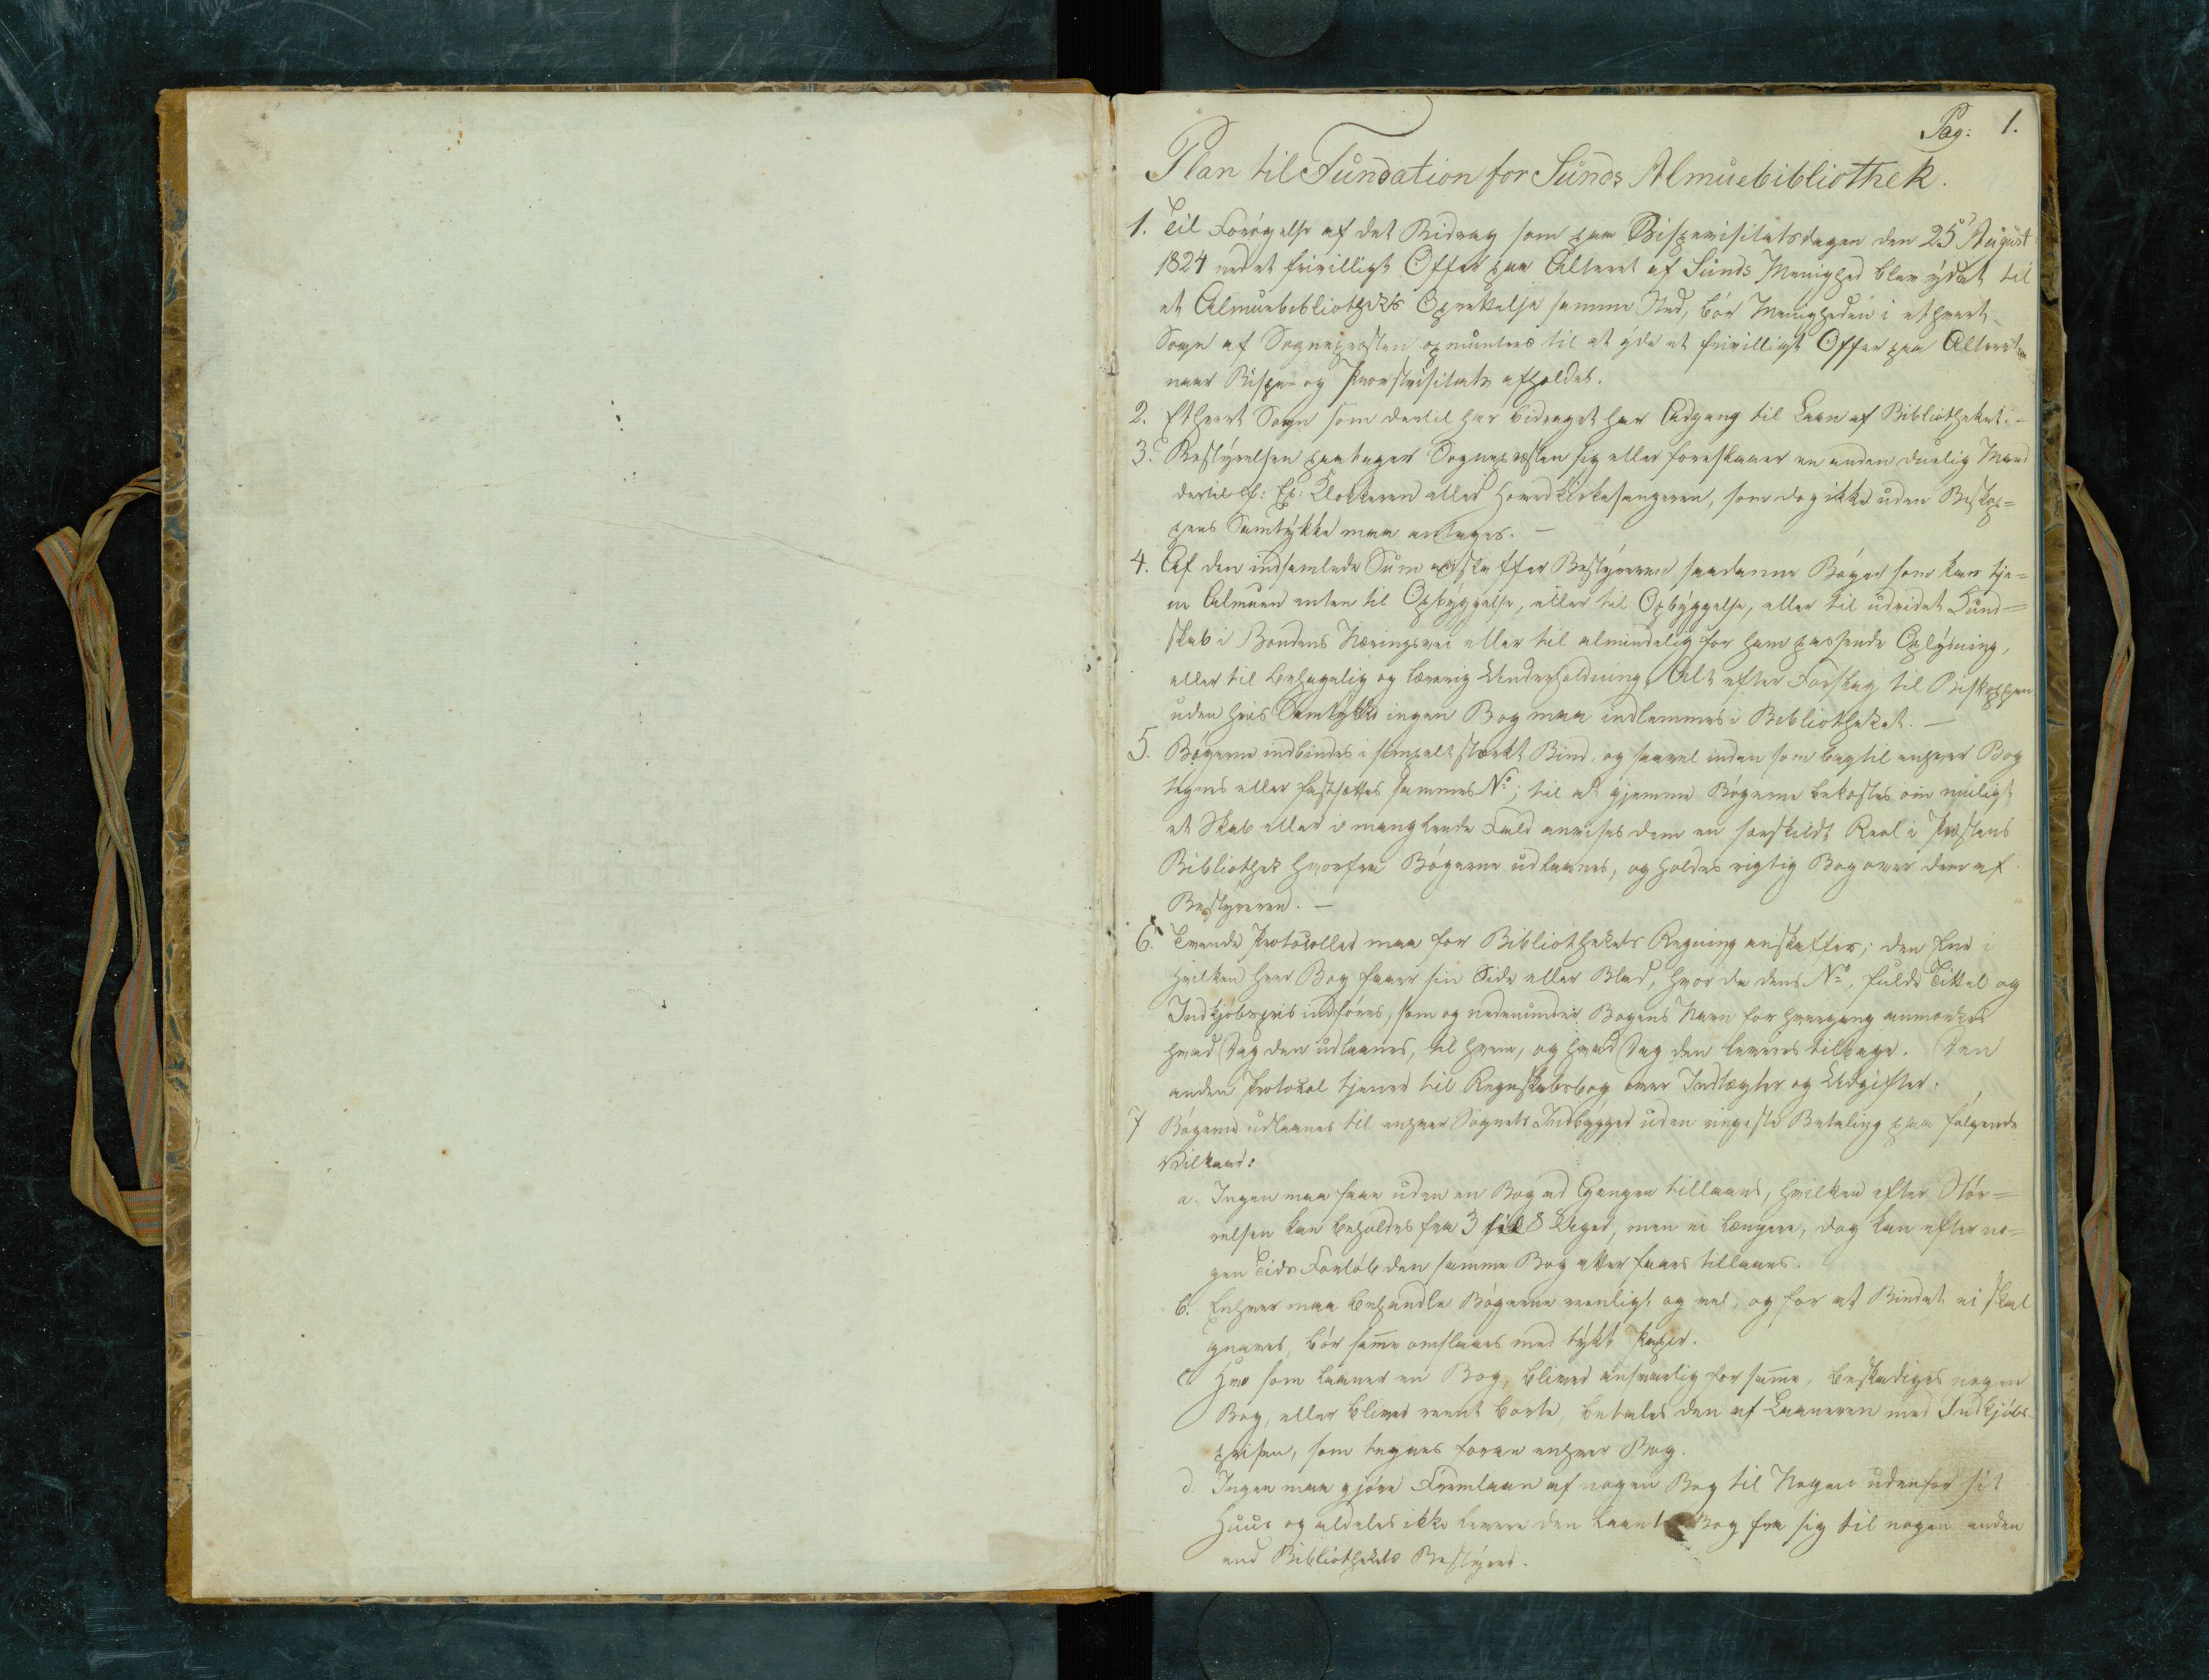 Pag: 1.
Plan til Fundation for Sunds Almuebibliothek.
1. Til Forøgelse af det Bidrag som paa Bispevisitatsdagen den 25de August
1824 ved et frivilligt Offer paa Alteret af Sunds Menighed blev ydet til
et Almuebibliotheks Oprettelse samme Sted, bør Menigheden i ethvert
Sogn af Sognepræsten opmuntres til at yde et frivilligt Offer paa Alteret
naar Bispe- og Provstevisitats afholdes.
2. Ethvert Sogn som dertil har bidraget har Adgang til Laan af Bibliotheket. –
3. Bestyrelsen paatager Sognepræsten sig eller foreslaaer en anden duelig Mand
dertil f: Ex: Klokkeren eller Hovedkirkesangeren, som dog ikke uden Biskop=
pens Samtykke maa antages. –
4. Af den indsamlede Sum anskaffer Bestyreren saadanne Bøger som kan tje=
ne Almuen enten til Opbyggelse, eller til Opbyggelse, eller til udvidet Kund=
skab i Bondens Næringsvei eller til almindelig for ham passende Oplysning,
eller til behagelig og lærerig Underholdning, Alt efter Forslag til Biskoppen
uden hvis Samtykke ingen Bog maa indlemmes i Bibliotheket. –
5. Bøgerne indbindes i simpelt stærkt Bind, og saavel inden som bagtil enhver Bog
tegnes eller fastsættes sammes No; til at gjemme Bøgerne bekostes om muligt
et Skab eller i manglende Fald anvises dem en særskildt Reol i Præstens
Bibliothek hvorfra Bøgerne udlaanes, og holdes rigtig Bog over dem af
Bestyreren. –
6. Tvende Protocoller maa for Bibliothekets Regning anskaffes; den Ene i
hvilken hver Bog faaer sin Side eller Blad, hvor da dens No, fulde Tittel og
Indkjøbspris indføres, som og nedenunder Bogens Navn for hvergang anmærkes
hvad Dag den udlaanes, til hvem, og hvad Dag den leveres tilbage. Den
anden Protocol tjener til Regnskabsbog over Indtægter og Udgifter.
7 Bøgerne udlaanes til enhver Sognets Indbygger uden ringeste Betaling paa følgende
Vilkaar:
a. Ingen maa faae uden en Bog ad Gangen tillaans, hvilken efter Stør=
relsen kan beholdes fra 3 til 8 Uger, men ei længere, dog kan efter no=
gen Tids Forløb den samme Bog atter faaes tillaans.
b. Enhver maa behandle Bøgerne reenligt og vel, og for at Bindet ei skal
gnaves, bør samme omslaaes med tykt Papir.
c. Hvo som laaner en Bog, bliver ansvarlig for samme, beskadiges nogen
Bog, eller bliver reent borte, betales den af Laaneren med Indkjøbs-
prisen, som tegnes foran enhver Bog.
d. Ingen maa gjøre Fremlaan af nogen Bog til Nogen udenfor sit
Huus og aldeles ikke levere den laante Bog fra sig til nogen anden
end Bibliothekets Bestyrer.